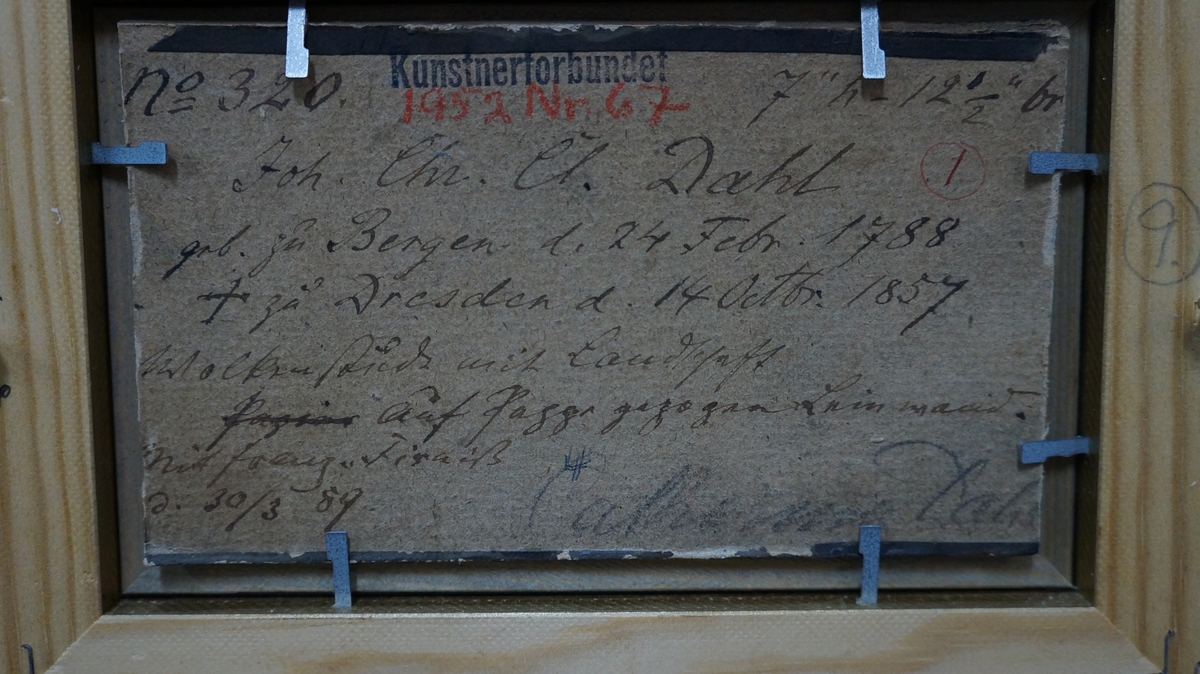 No 320.
Kunstnerforbundet
7" h - 12 1/2" br
1952 Nr. 67
Joh. Chr. Cl. Dahl
1
geb. zu Bergen d. 24 Febr. 1788
9.
† zu Dresden d. 14 Octbr. 1857
Wolkenstück mit Landschaft
Papier auf Pappe gezogen Leinwand.
Mit franz. Firniß
d. 30/3 89.
#